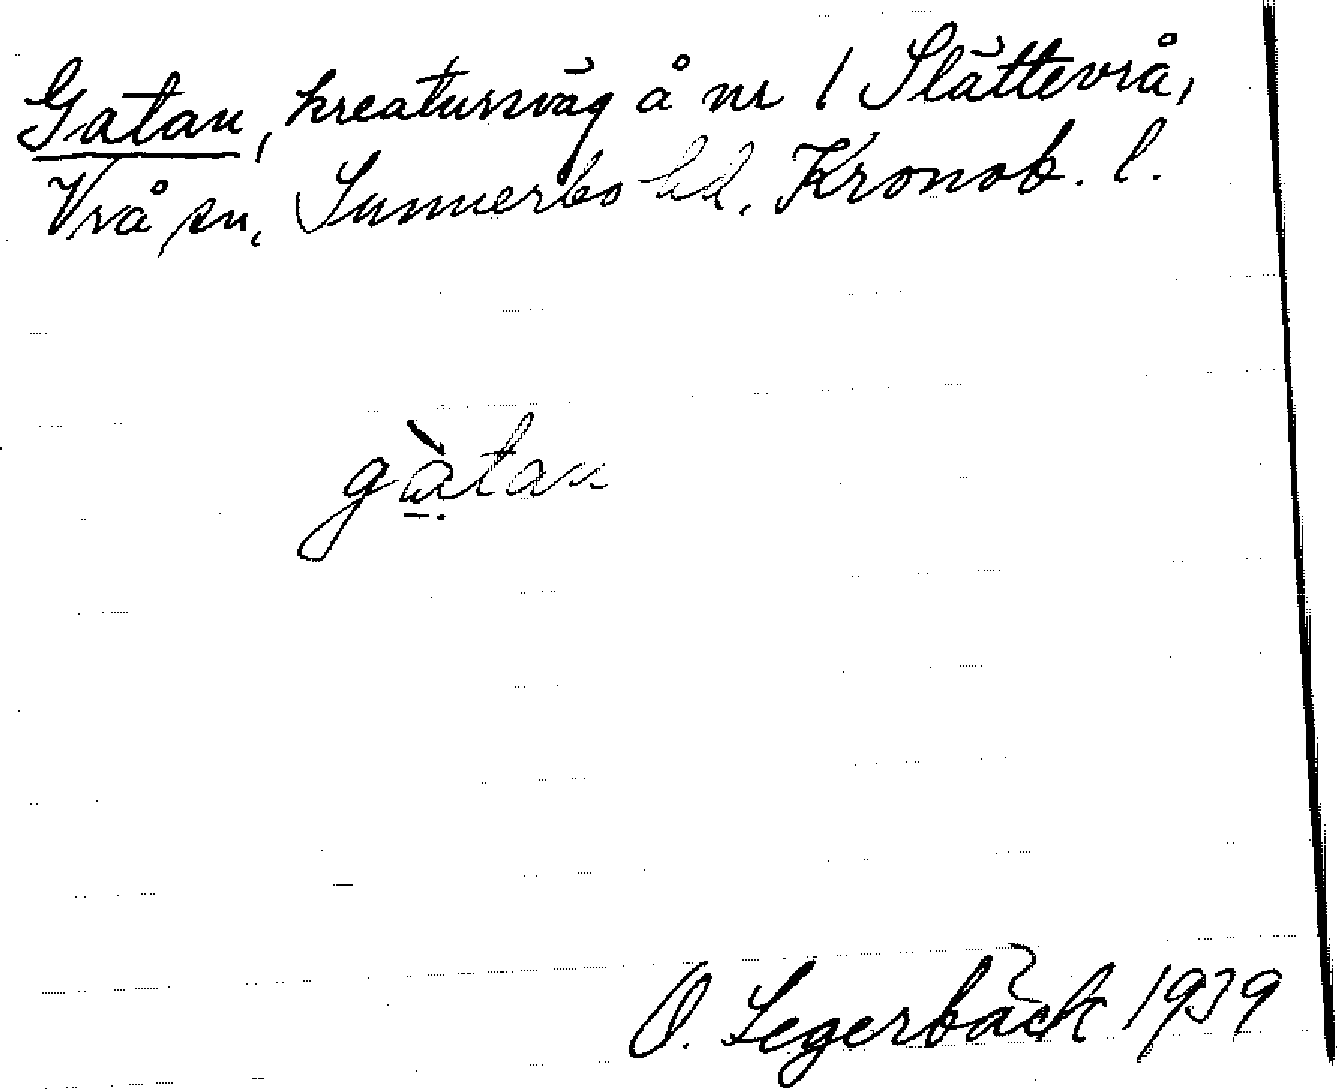 Gatan, kreatursväg å nr 1 Slättevrå,
Vrå sn, Sunnerbo hd. Kronob. l.
gà̱tan
O. Segerbäck 1939